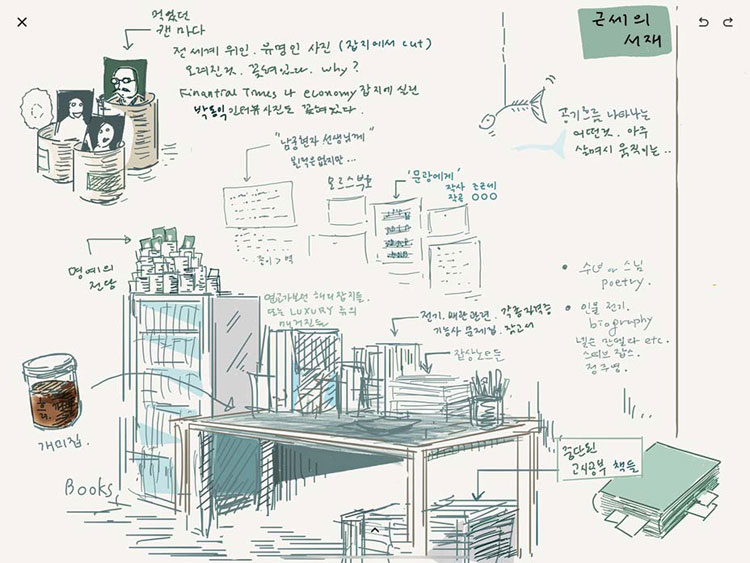 근세의
서재
먹었던
캔 마다
전 세계 위인. 유명인 사진 (잡지에서 cut)
오려진것. 꽂혀있다. why?
Finantral Times 나 economy 잡지에 실린
박동익 인터뷰사진도 꽂혀있다.
공기흐름 나타나는
어떤것. 아주
살며시 움직이는..
"남궁현자 선생님께"
뵌적은없지만...
모르스부호
'문광에게'
작사 오근세
작곡 ○○○
종이 > 벽
명예의
전당
연교가보던 해외잡지들.
또는 LUXURY 류의
매거진들
전기. 배관관련. 각종 자격증
기능사 문제집. 참고서
잡상노트들
• 수녀 or 스님
poetry.
• 인물 전기.
biography
넬슨 만델라 etc.
스티브 잡스.
정주영.
개미집.
Books
중단된
고시공부 책들